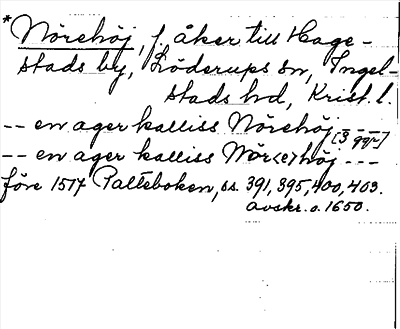 *Nörehöj, f. åker till Hage-
stads by, Löderups sn, Ingel-
stads hd, Krist. l.
-- en ager kalliss Nörehöj [3 ggr]
-- en ager kalliss Nör<e>höj ---
före 1517 Palteboken, ss. 391, 395, 400, 403.
avskr. o. 1650.